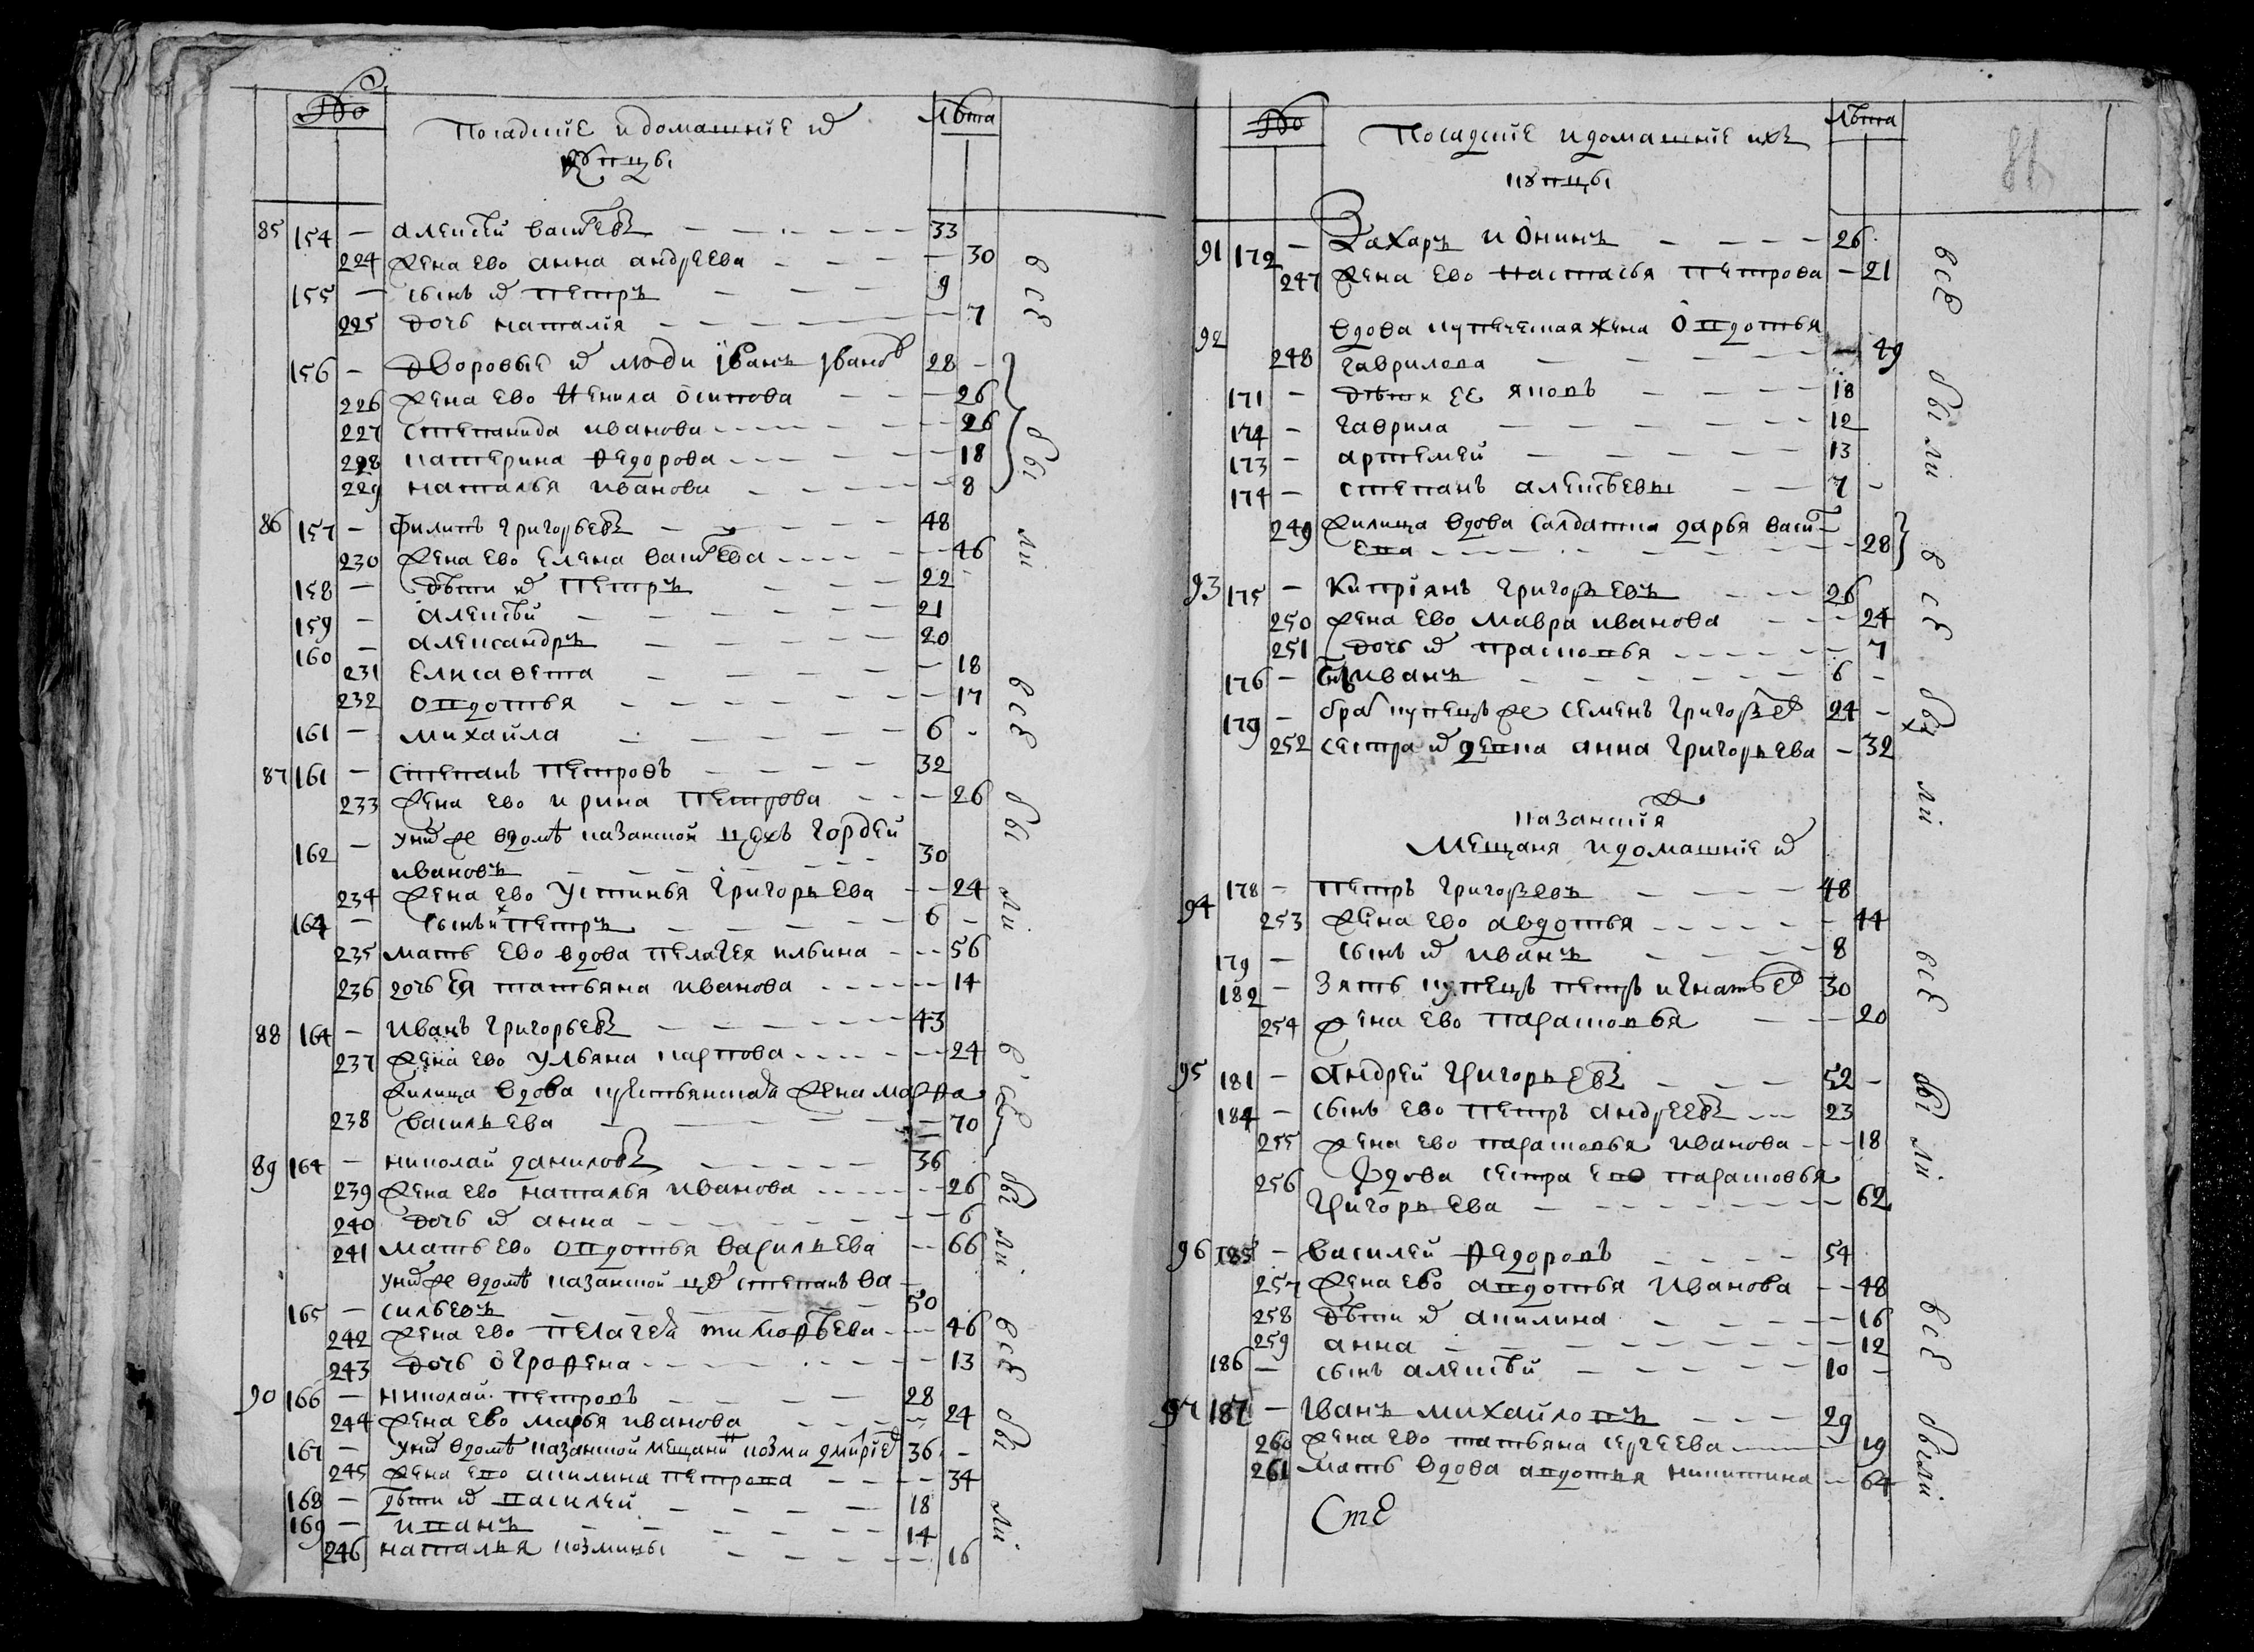 Посадскіе и домашніе их
купцы
Лѣта
85 154 — Алексѣй Васильевъ — 33
224 жена ево анна андреева — 30
155 — сынъ их петръ — 9
225 дочь наталія — 7
156 — Дворовые их люди Іванъ Іванов 28 —
226 жена ево Ненила осипова — 26
227 степанида иванова — 26
228 катерина Ѳедорова — 18
229 наталья иванова — 8
86 157 — филипъ григорьевъ — 48
230 жена ево елена васильева — 46
158 — дѣти их петръ — 22
159 — алексѣй — 21
160 — александръ — 20
231 елисавета — 18
232 овдотья — 17
161 — михайла — 6
87 161 — степанъ петровъ — 32
233 жена ево ирина петрова — 26
162 — у них же вдомѣ казанской цехъ гордей
ивановъ — 30
234 жена ево устинья григорьева — 24
164 — сынъ их петръ — 6 —
235 мать ево вдова пелагея ильина — 56
236 дочь ея татьяна иванова — 14
88 164 — иванъ григорьевъ — 43
237 жена ево ульяна карпова — 24
жилица вдова крестьянская жена марѳа
238 васильева — 70
89 164 — николай даниловъ — 36
239 жена ево наталья иванова — 26
240 дочь их анна — 6
241 мать ево овдотья васильева — 66
у них же вдомѣ казанской цех степанъ ва
165 — сильевъ — 50
242 жена ево пелагея тимоѳѣева — 46
243 дочь огроѳена — 13
90 166 — николай петровъ — 28
244 жена ево марья иванова — 24
167 — у них вдомѣ казанской мещанин козма дмитріев 36 —
245 жена ево акилина петрова — 34
168 — дѣти их василей — 18
169 — иванъ — 14
246 наталья козмины — 16
все
бы
ли
все
бы
ли
все
бы
ли
все
бы
ли
Посадскіе и домашніе ихъ
купцы
Лѣта
86
91 172 — Захаръ ионинъ — 26
247 жена ево настасья петрова — 21
92 вдова купеческая жена овдотья
248 гаврилова — 49
171 — дѣти ее яковъ — 18
174 — гаврила — 12
173 — артемей — 13
174 — степанъ алексѣевы — 7 —
249 жилица вдова салдатка дарья васи
ева — 28
93 175 — Кипріянъ григорьевъ — 26
250 жена ево мавра иванова — 24
251 дочь их прасковья — 7
176 — снъ иванъ — 6 —
179 — брат купецъ же семенъ григорьев 24 —
252 сестра их девка анна григорьева — 32
казанскія
мещаня и домашніе их
94 178 — петръ григорьевъ — 48
253 жена ево авдотья — 44
179 — сынъ их иванъ — 8
182 — зять купецъ петръ игнатьев 30
254 жена ево парасковья — 20
95 181 — Андрей григорьевъ — 52 —
184 — сынъ ево петръ андреевъ — 23
255 жена ево парасковья иванова — 18
256 вдова сестра ево парасковья
григорьева — 62
96 185 — василей Ѳедоровъ — 54
257 жена ево авдотья иванова — 48
258 дѣти их акилина — 16
259 анна — 12
186 — сынъ алексѣй — 10 —
97 187 — Иванъ михайловъ — 29
260 жена ево татьяна сергеева — 19
261 мать вдова авдотья никитина — 64
все
бы
ли
все
бы
ли
все
бы
ли
все
были